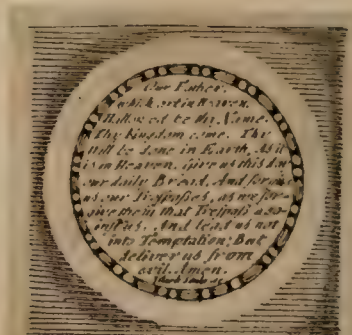 Our Father,
which art in Heaven,
Hallowed be thy Name.
Thy Kingdom come. Thy
Will be done in Earth, As it
is in Heaven. Give us this day
our daily Bread. And forgive
us our Trespasses, as we for-
give them that Trespass aga-
inst us. And lead us not
into Temptation; But
deliver us from
evil. Amen.